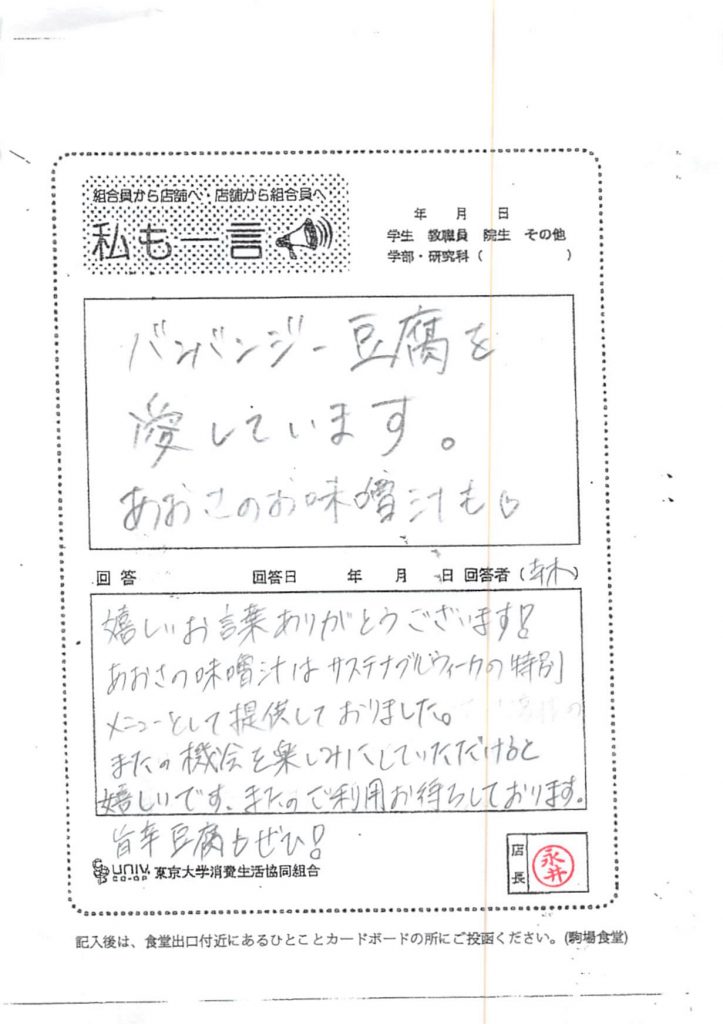 組合員から店舗へ・店舗から組合員へ
私も一言
年 月 日
学生 教職員 院生 その他
学部・研究科 ( )
バンバンジー豆腐を
愛しています。
あおさのお味噌汁も♡
回答 回答日 年 月 日 回答者 (寺木)
嬉しいお言葉ありがとうございます!
あおさの味噌汁はサステナブルウィークの特別
メニューとして提供しておりました。
またの機会を楽しみにしていただけると
嬉しいです、またのご利用お待ちしております。
旨辛豆腐もぜひ!
UNIV. CO-OP 東京大学消費生活協同組合
店長 永井
記入後は、食堂出口付近にあるひとことカードボードの所にご投函ください。(駒場食堂)